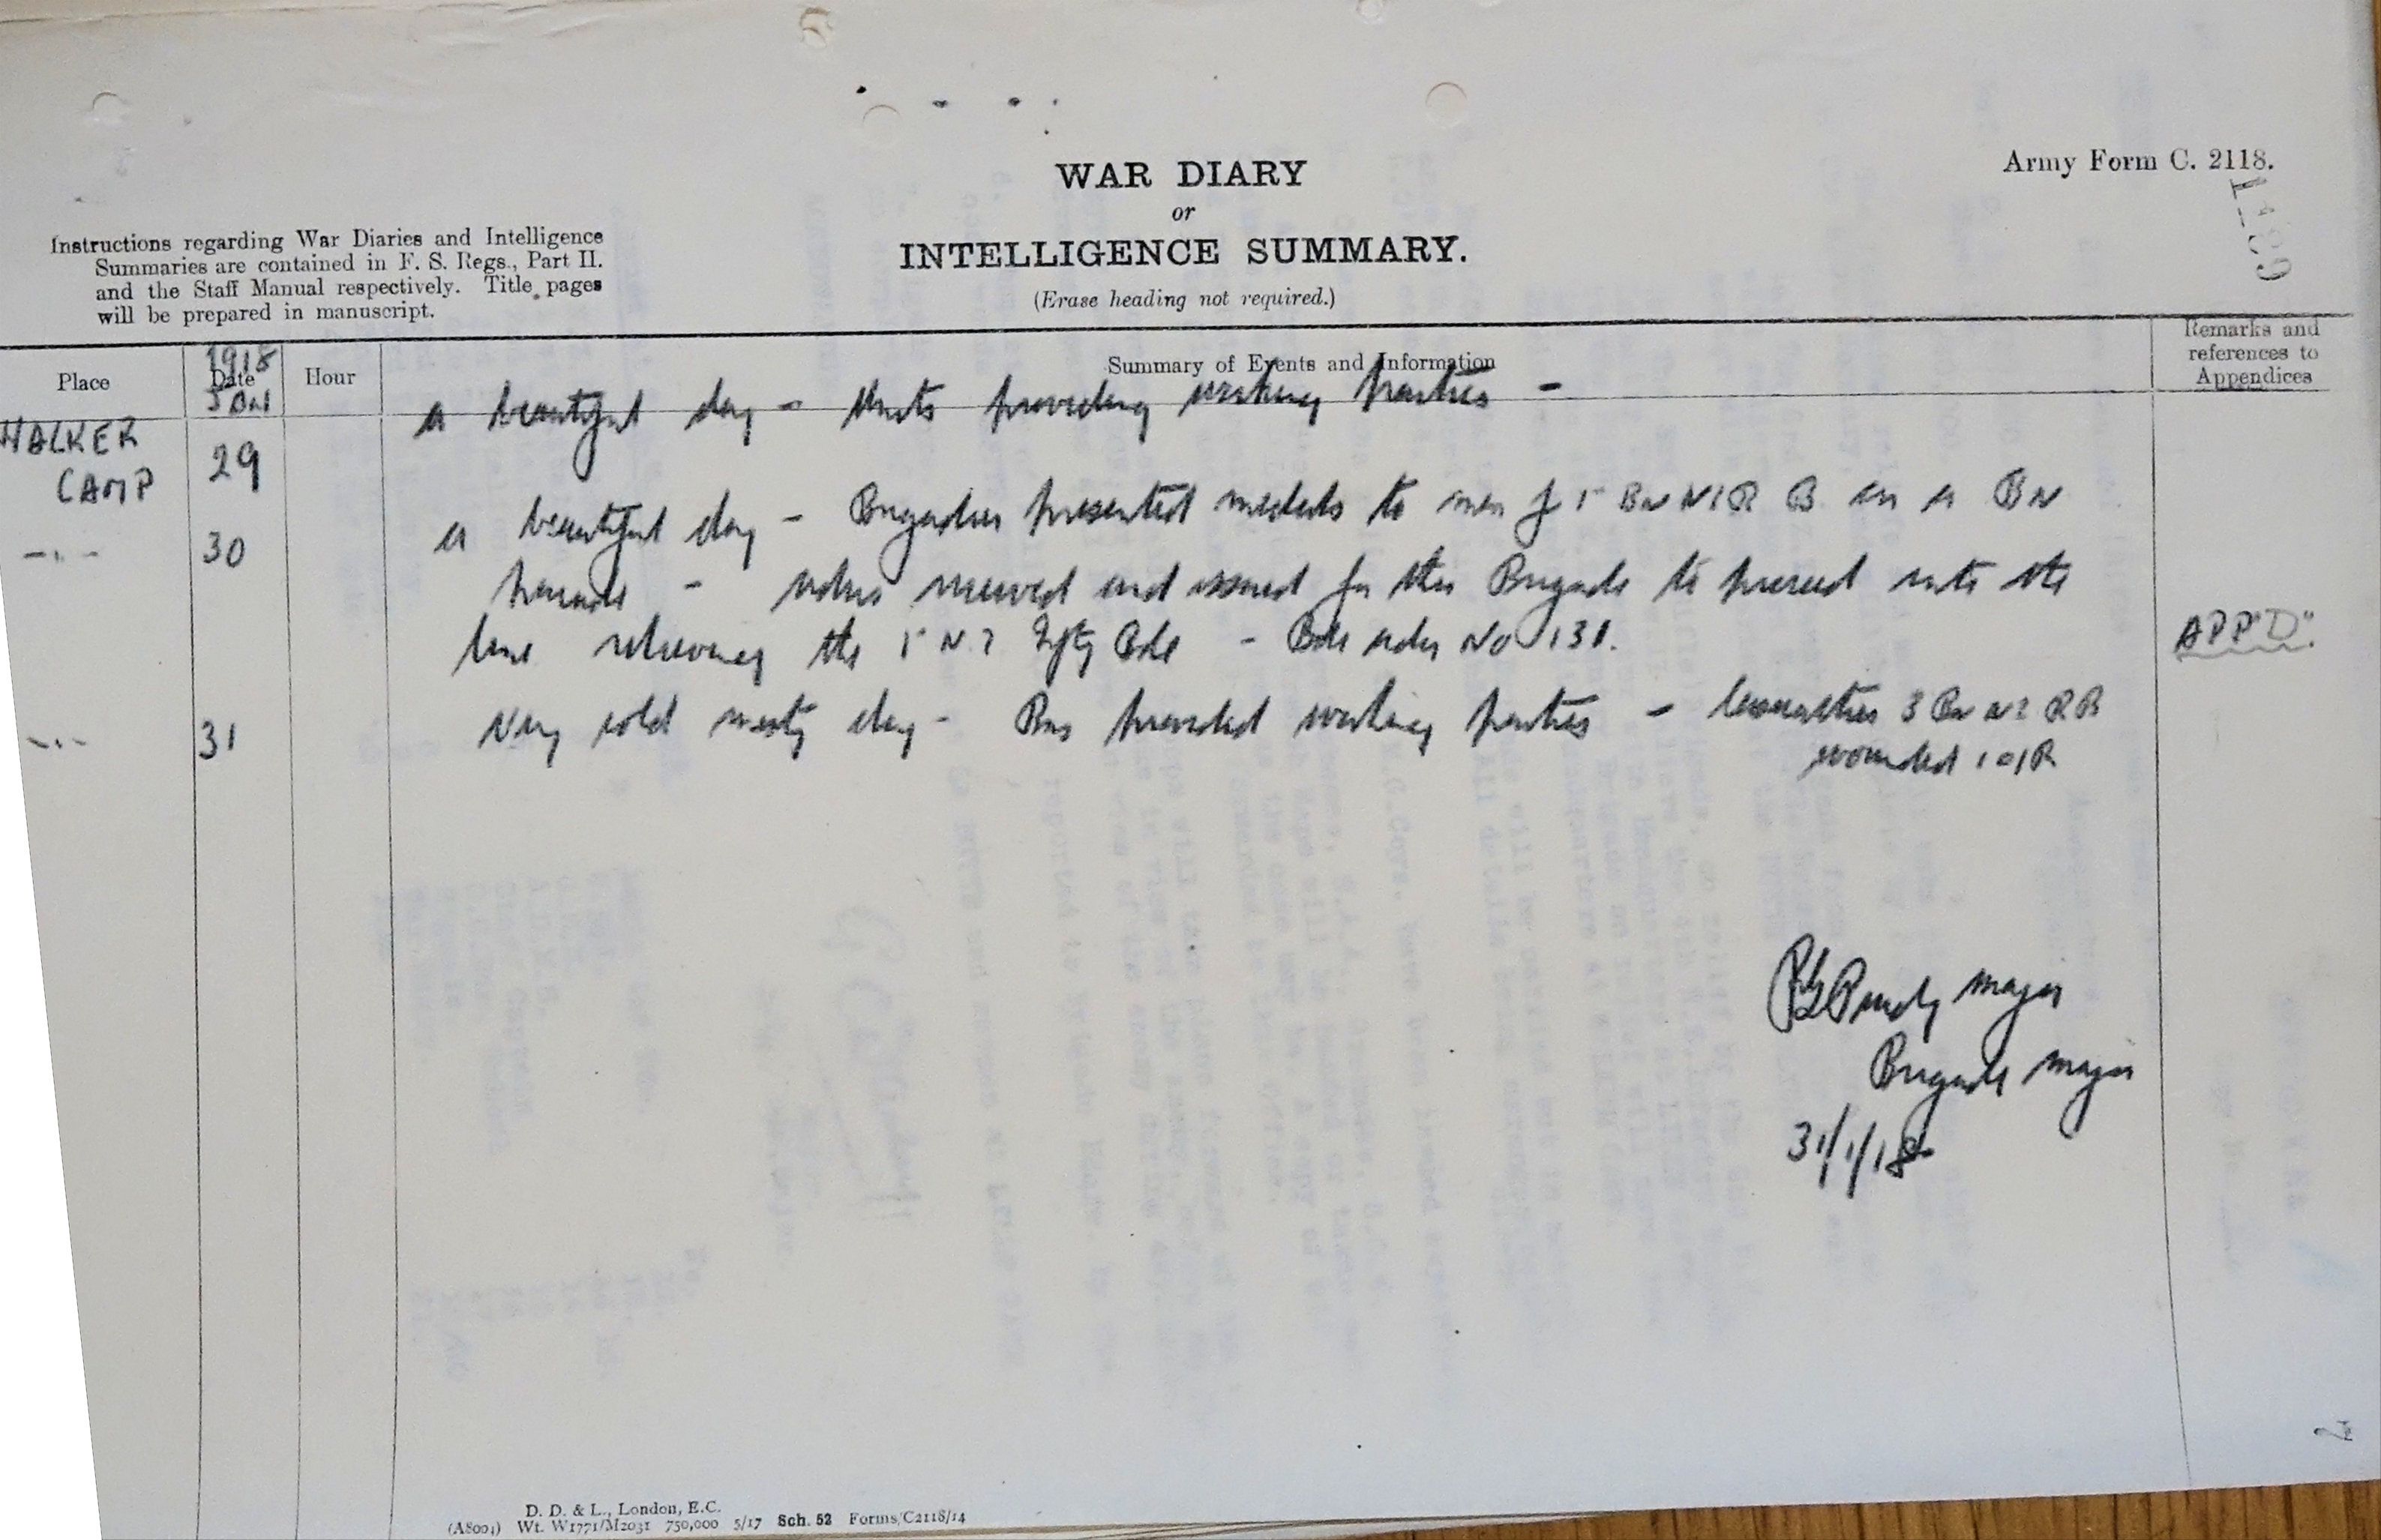 Army Form C. 2118.
WAR DIARY
or
INTELLIGENCE SUMMARY.
(Erase heading not required.)
Instructions regarding War Diaries and Intelligence
Summaries are contained in F. S. Regs., Part II.
and the Staff Manual respectively. Title pages
will be prepared in manuscript.
Place
1918
Date
Jan
Hour
Summary of Events and Information
Remarks and
references to
Appendices
WALKER
CAMP
29
A beautiful day - Units providing working parties -
30
A beautiful day - Brigadier presented medals to men of Bn NZRB on a Bn
parade - orders received and issued for this Brigade to proceed into the
line relieving the NZ Infty Bde - Bde order No 131.
APP "D".
31
Very cold misty day - Bns provided working parties - Casualties 3 Bn NZ RB
wounded 1 O/R
Purdy Major
Brigade Major
31/1/18
D. D. & L., London, E.C.
(A8001) Wt. W1771/M2031 750,000 5/17 Sch. 52 Forms/C2118/14